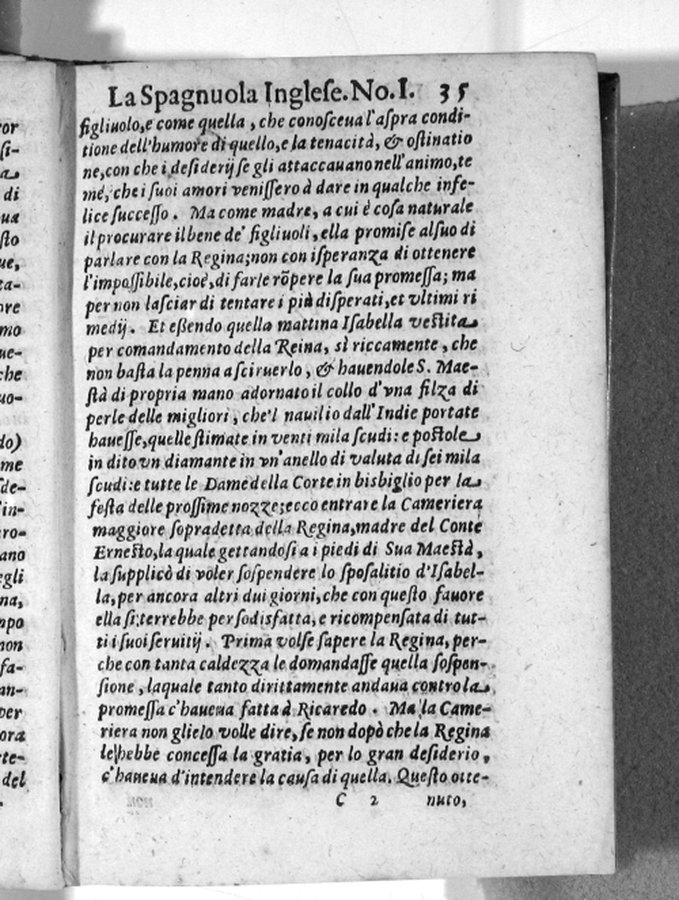 ror
si-
a
di
ua
sto
ue,
ta-
ore
mo
ue-
che
uo-
do)
me
de-
in-
ro-
ano
egli
na,
mpo
non
fa-
an-
per
ora
te-
del
La Spagnuola Inglese. No. I. 35
figliuolo, e come quella, che conosceua l'aspra condi-
tione dell'humore di quello, e la tenacità, & ostinatio
ne, con che i desiderij se gli attaccauano nell'animo, te
mè, che i suoi amori venissero à dare in qualche infe-
lice successo. Ma come madre, a cui è cosa naturale
il procurare il bene de' figliuoli, ella promise al suo di
parlare con la Regina; non con isperanza di ottenere
l'impossibile, cioè, di farle rõpere la sua promessa; ma
per non lasciar di tentare i più disperati, et vltimi ri
medij. Et eßendo quella mattina Isabella vestita
per comandamento della Reina, sì riccamente, che
non basta la penna a sciruerlo, & hauendole S. Mae-
stà di propria mano adornato il collo d'vna filza di
perle delle migliori, che'l nauilio dall'Indie portate
hauesse, quelle stimate in venti mila scudi: e postole
in dito vn diamante in vn'anello di valuta di sei mila
scudi: e tutte le Dame della Corte in bisbiglio per la
festa delle prossime nozze; ecco entrare la Cameriera
maggiore sopradetta della Regina, madre del Conte
Ernesto, la quale gettandosi a i piedi di Sua Maestà,
la supplicò di voler sospendere lo sposalitio d'Isabel-
la, per ancora altri dui giorni, che con questo fauore
ella si terrebbe per sodisfatta, e ricompensata di tut-
ti i suoi seruitij. Prima volse sapere la Regina, per-
che con tanta caldezza le domandasse quella sospen-
sione, laquale tanto dirittamente andaua contro la
promessa c'haueua fatta à Ricaredo. Ma la Came-
riera non glielo volle dire, se non dopò che la Regina
le hebbe concessa la gratia, per lo gran desiderio,
c'haueua d'intendere la causa di quella. Questo otte-
C 2 nuto,